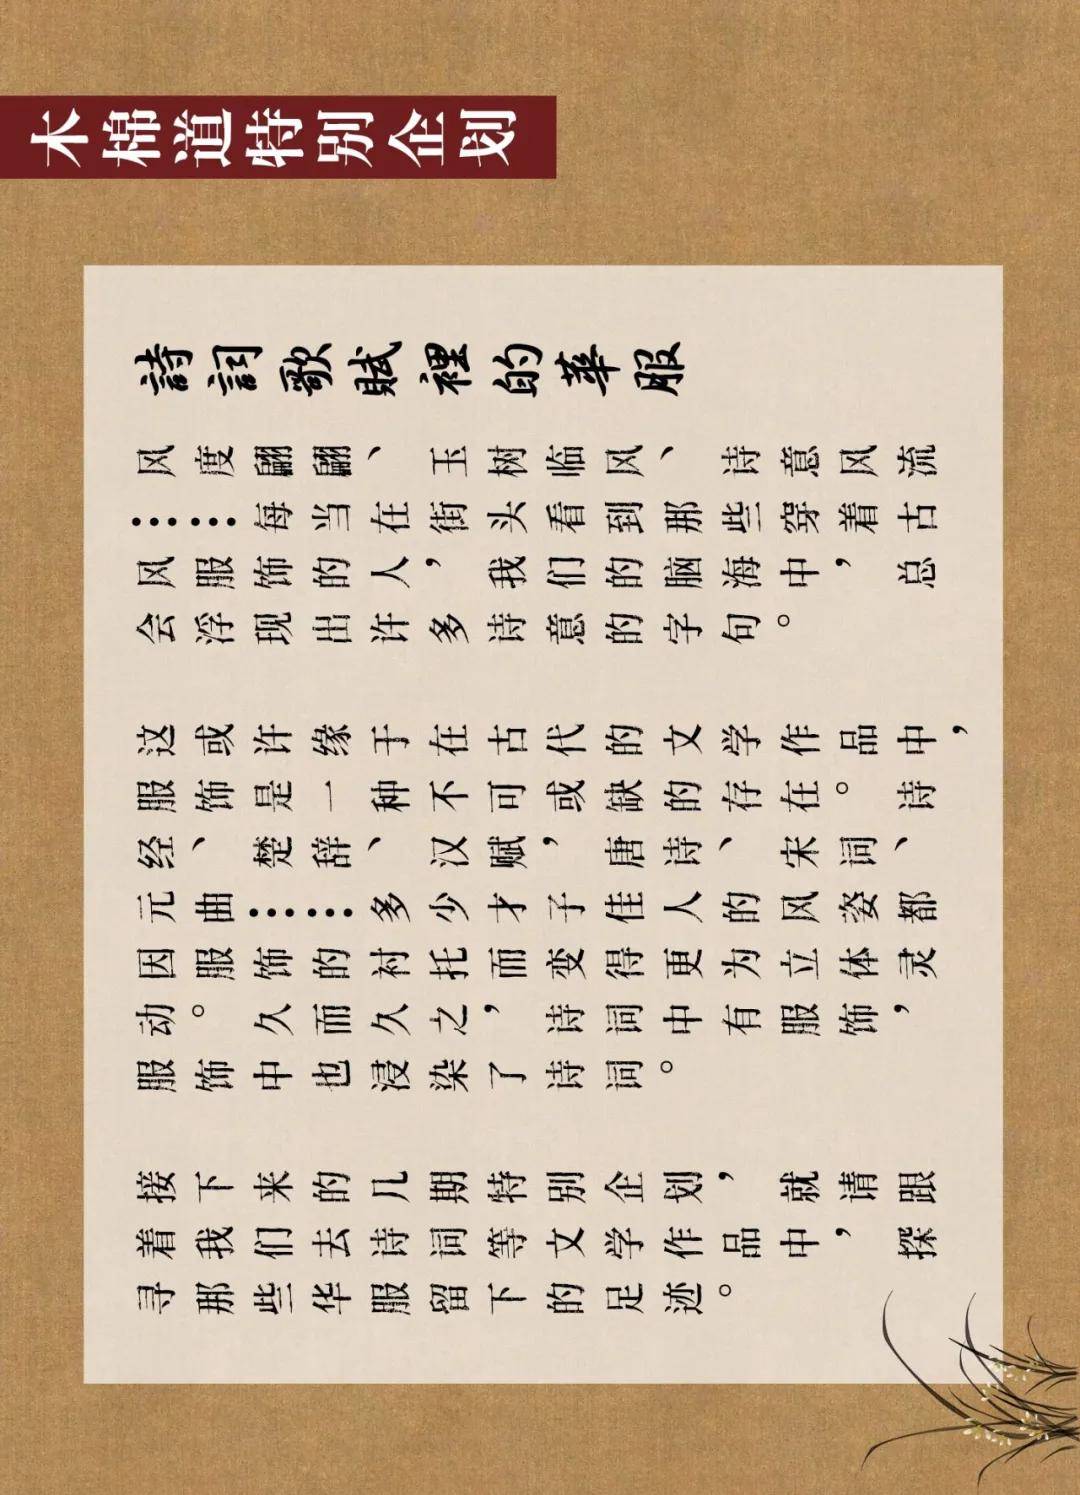 木棉道特别企划
詩詞歌賦裡的華服
风度翩翩、玉树临风、诗意风流
……每当在街头看到那些穿着古
风服饰的人，我们的脑海中，总
会浮现出许多诗意的字句。
这或许缘于在古代的文学作品中，
服饰是一种不可或缺的存在。诗
经、楚辞、汉赋，唐诗、宋词、
元曲……多少才子佳人的风姿都
因服饰的衬托而变得更为立体灵
动。久而久之，诗词中有服饰，
服饰中也浸染了诗词。
接下来的几期特别企划，就请跟
着我们去诗词等文学作品中，探
寻那些华服留下的足迹。